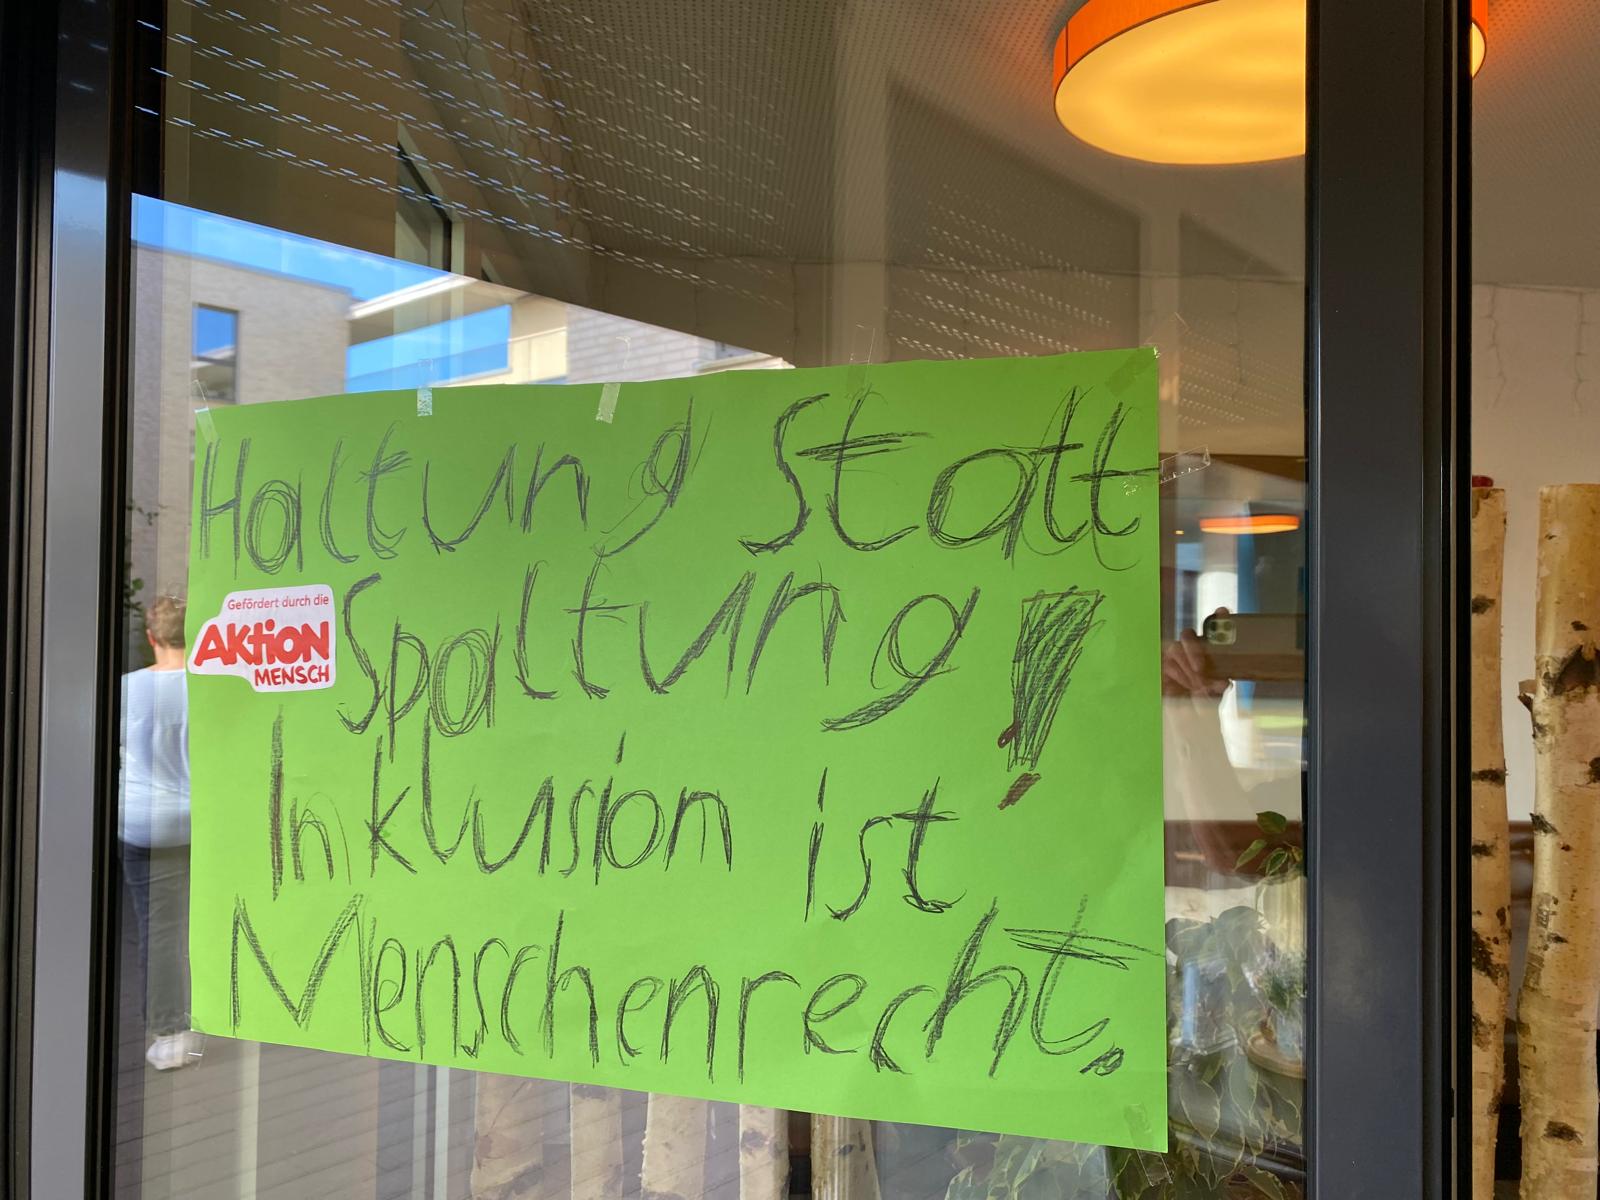 Haltung Statt
Spaltung!
Gefördert durch die
AKtiON
MENSCH
Inklusion ist
Menschenrecht.